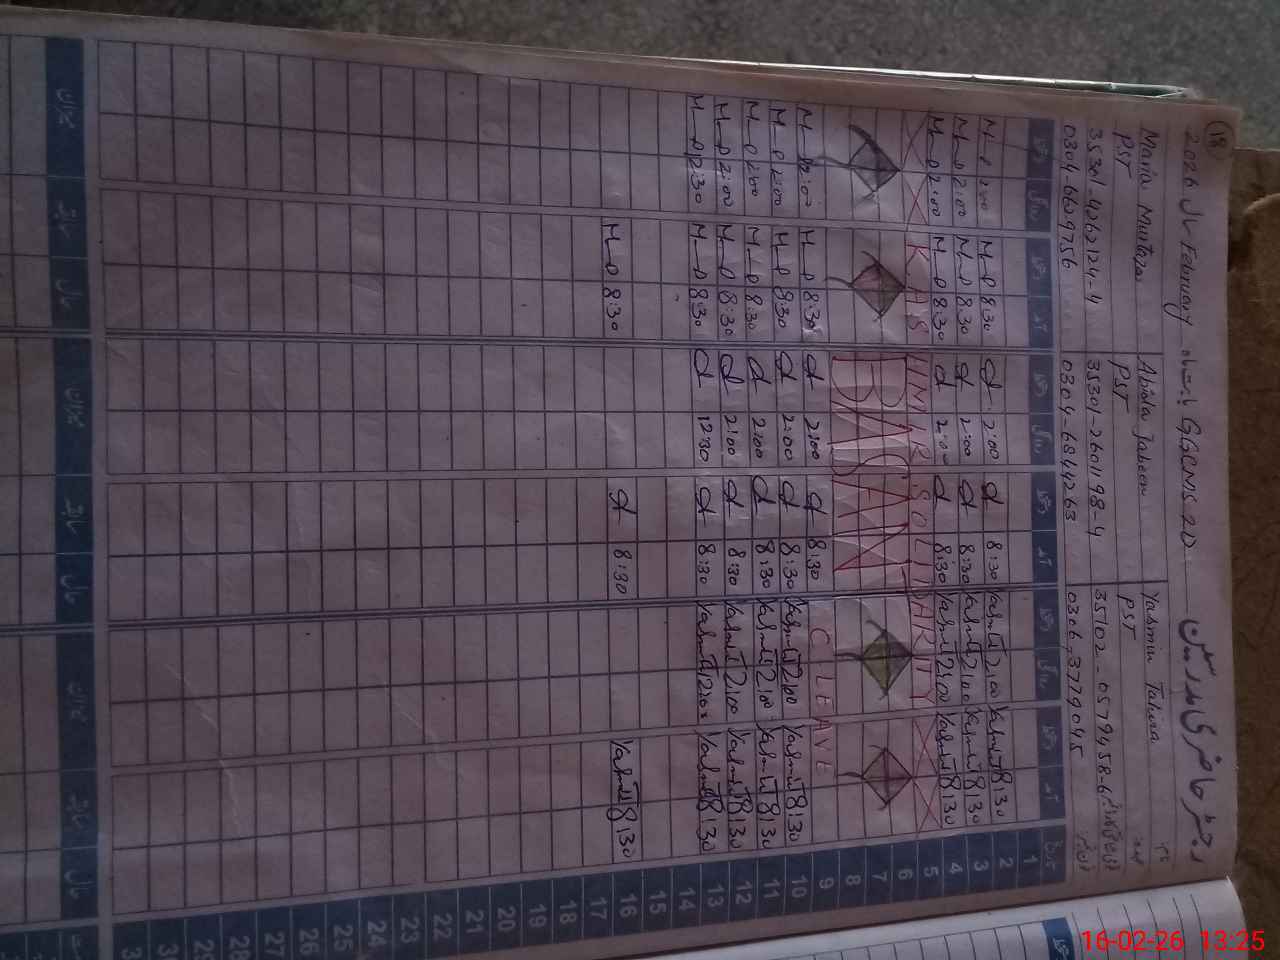 18
2026 سال February بابت ماہ GGCMS 2D رجسٹر حاضری مدرسین
Maria Murtaza Abida Yasmin Tahira نام
PST PST PST عہدہ
35301-4262124-4 35301-2601198-4 35102-0579458-6
0304-6629756 0304-6844263 0306-3779045
دستخط دستخط دستخط دستخط دستخط دستخط تاریخ
1
2:00 8:30 2:00 8:30 Yasmin T 2:00 Yasmin T 8:30 2
2:00 8:30 2:00 8:30 Yasmin T 2:00 Yasmin T 8:30 3
2:00 8:30 2:00 8:30 Yasmin T 2:00 Yasmin T 8:30 4
KASHMIR SOLIDARITY 5
6
BASANT 7
8
2:00 8:30 2:00 8:30 C.LEAVE 9
2:00 8:30 2:00 8:30 Yasmin T 2:00 Yasmin T 8:30 10
2:00 8:30 2:00 8:30 Yasmin T 2:00 Yasmin T 8:30 11
2:00 8:30 2:00 8:30 Yasmin T 2:00 Yasmin T 8:30 12
12:30 8:30 12:30 8:30 Yasmin T Yasmin T 8:30 13
14
15
8:30 8:30 Yasmin T 8:30 16
17
18
19
20
21
22
23
24
25
26
27
28
29
میزان سابقہ حال میزان سابقہ حال میزان سابقہ حال
16-02-26 13:25